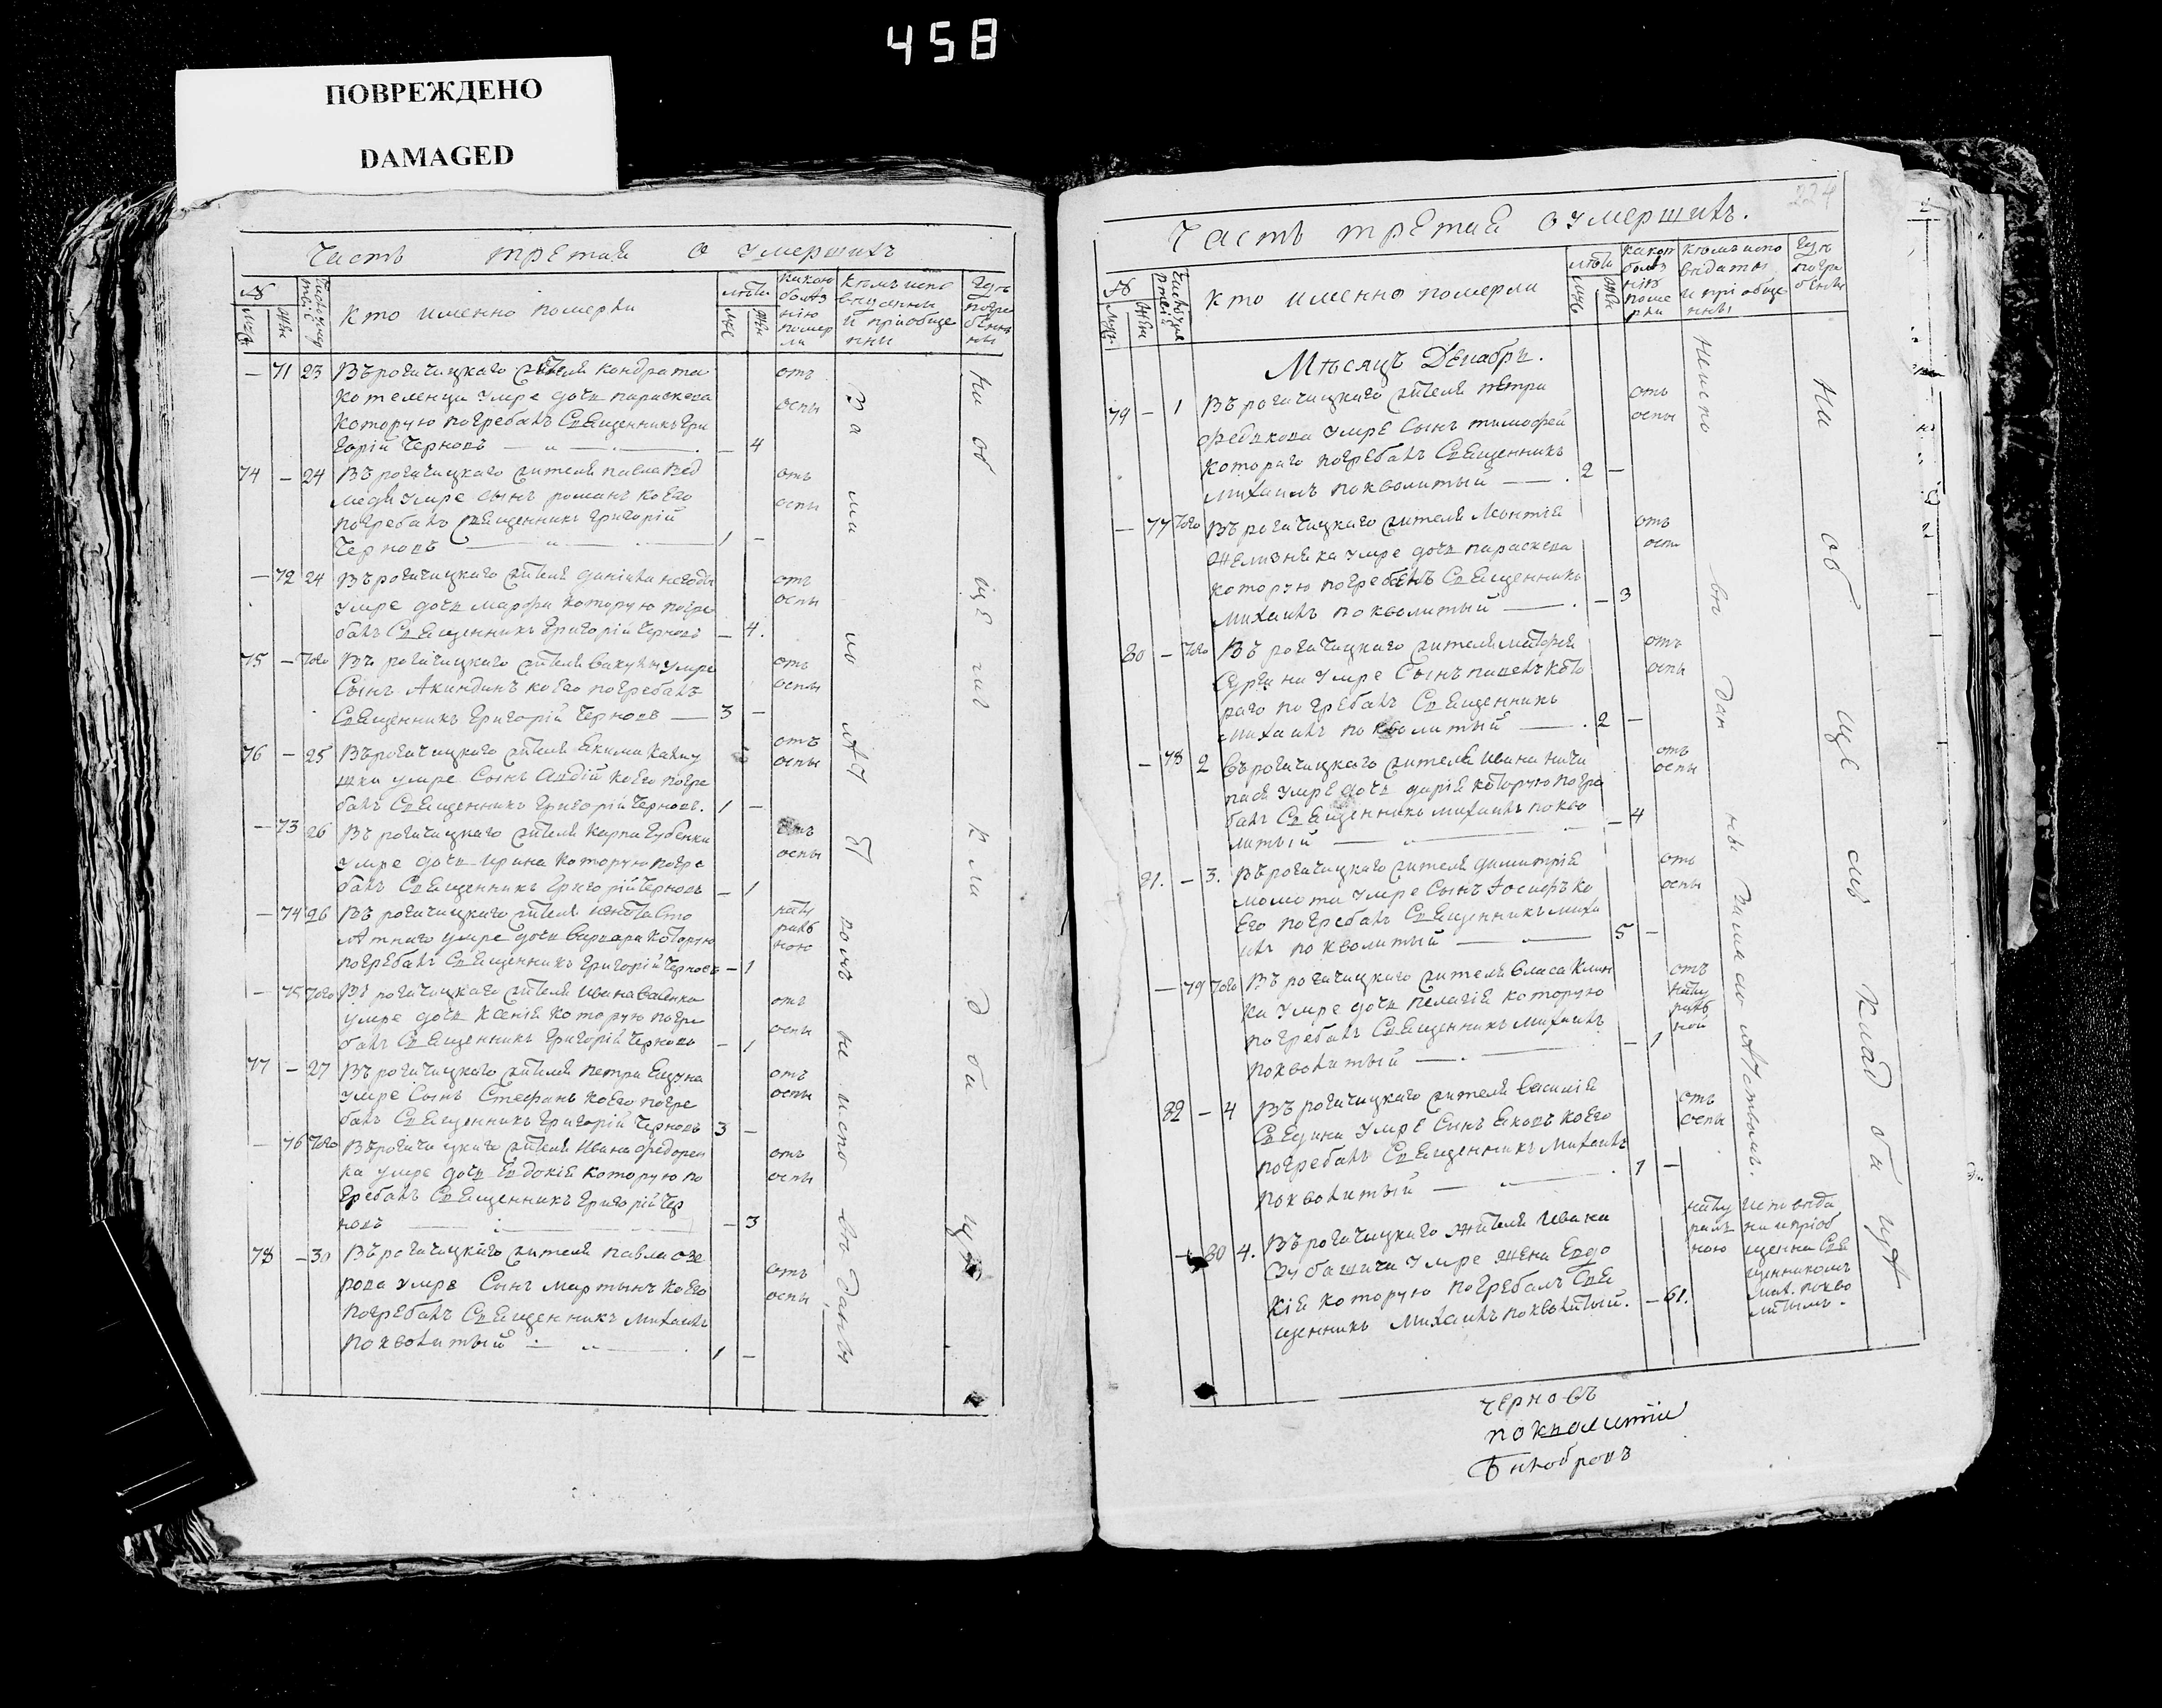 458
ПОВРЕЖДЕНО
DAMAGED
Часть третия о умершихъ
№
Кто именно померли
лѣта
какою болѣзнію померли
Кѣмъ исповѣдованы и пріобщены
Гдѣ погребены
— 71 23 Въ рогачицкаго жителя Кондрата
Котеленца умре дочь параскева
Которую погребалъ Священникъ Гри
горій Черновъ — 4
отъ оспы
74 — 24 Въ рогачицкаго жителя павла Вед
медя умре сынъ романъ коего
погребалъ Священникъ Григорій
Черновъ 1 —
отъ оспы
— 72 24 Въ рогачицкаго жителя даніила негоды
умре дочь марфа которую погре
балъ Священникъ Григорій Черновъ — 4.
отъ оспы
75 — того Въ рогачицкаго жителя вакулы умре
Сынъ Акиндинъ коего погребалъ
Священникъ Григорій Черновъ — 3 —
отъ оспы
76 — 25 Въ рогачицкаго жителя Екима Калиу
жки умре Сынъ Авдій коего погре
балъ Священникъ Григорій Черновъ. 1 —
отъ оспы
— 73 26 Въ рогачицкаго жителя Карпа Губенка
умре дочь ирина Которую погре
балъ Священникъ Григорій Черновъ — 1
отъ оспы
— 74 26 Въ рогачицкаго жителя Сто
лѣтняго умре дочь варвара Которую
погребалъ Священникъ Григорій Черновъ — 1
нату
раль
ною
— 75 того Въ рогачицкаго жителя Ивана
умре дочь Ксенія Которую погре
балъ Священникъ Григорій Черновъ — 1
отъ оспы
77 — 27 Въ рогачицкаго жителя петра Ецуна
умре Сынъ Стефанъ коего погре
балъ Священникъ Григорій Черновъ 3 —
отъ оспы
— 76 того Въ рогачицкаго жителя Ивана федорен
ка умре дочь Евдокія которую по
гребалъ Священникъ Григорій Чер
новъ — 3
отъ оспы
78 — 30 Въ рогачицкаго жителя павла озе
рова умре Сынъ мартынъ коего
погребалъ Священникъ михаилъ
покволитый 1 —
отъ оспы
За малолѣтствомъ не исповѣданы
На общемъ кладбищѣ
224
Часть третия о умершихъ.
№
Кто именно померли
лѣта
какою болѣзнію померли
Кѣмъ исповѣданы и пріобщены
Гдѣ погребены
Мѣсяцъ Декабрь.
79 — 1 Въ рогачицкаго жителя петра
федькова умре Сынъ тимофей
котораго погребалъ Священникъ
михаилъ покволитый — 2 —
отъ оспы
— 77 того Въ рогачицкаго жителя Леонтія
Желизнека умре дочь параскева
которую погребенъ Священникъ
Михаилъ покволитый — 3
отъ осп
80 — того Въ рогачицкаго жителя матфея
умре Сынъ павелъ кото
раго погребалъ Священникъ
михаилъ покволитый — 2 —
отъ оспы
— 78 2 Въ рогачицкаго жителя Ивана ничи
пася умре дочь дарія которую погре
балъ Священникъ михаилъ покво
литый — 4
отъ оспы
81. — 3. Въ рогачицкаго жителя димитрія
момота умре Сынъ Іосифъ ко
его погребалъ Священникъ миха
илъ покволитый — 5 —
отъ оспы
— 79 того Въ рогачицкаго жителя власа Клин
ка умре дочь пелагія которую
погребалъ Священникъ михаилъ
покволитый — 1
отъ
нату
раль
ной
82 — 4 Въ рогачицкаго жителя василія
умре Сынъ Яковъ коего
погребалъ Священникъ михаилъ
покволитый — 1 —
отъ оспы
— 80 4. Въ рогачицкаго жителя Ивана
умре жена Евдо
кія которую погребалъ Свя
щенникъ Михаилъ покволитый. — 61.
нату
раль
ною
Исповѣда
на и пріоб
щенна Свя
щенникомъ
Мих. покво
литымъ.
Не исповѣданы за малолѣтствомъ.
На общемъ кладбищѣ
Черновъ
покволитий